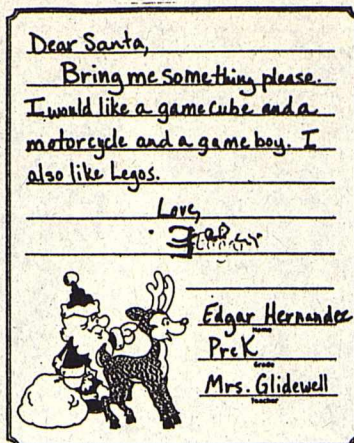 Dear Santa,
Bring me something please.
I would like a gamecube and a
motorcycle and a gameboy. I
also like Legos.
Love,
Edgar Hernandez
Name
PreK
Grade
Mrs. Glidewell
Teacher